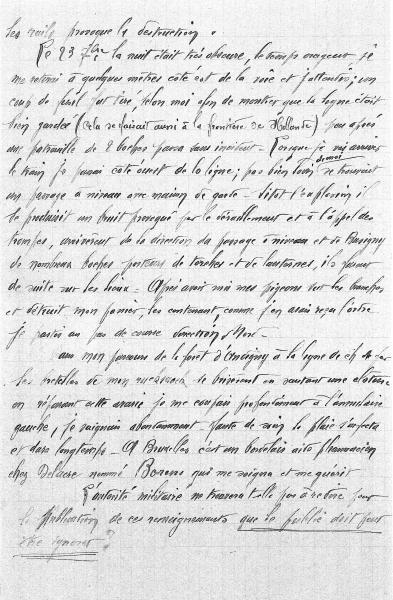 les rails provoque la destruction.
Le 23 7bre la nuit était très obscure, le temps orageux, je
me retirai à quelques mètres côté est de la voie et j'attendis; un
coup de fusil fut tiré, selon moi afin de montrer que la ligne était
bien gardée (cela se faisait aussi à la frontière de Hollande) peu après
une patrouille de 2 boches passa sans incident - Lorsque je vis arriver
le train je passai côté ouest de la ligne; pas bien loin devait se trouver
un passage à niveau avec maison de garde - Sitôt l'explosion il
se produisit un bruit provoqué par le déraillement et à l'appel des
trompes, arrivèrent de la direction du passage à niveau et de Busigny
de nombreux boches porteurs de torches et de lanternes, ils furent
de suite sur les lieux - Après avoir mis mes pigeons sur les branches
et détruit mon panier, les contenant, comme j'en avais reçu l'ordre
je partis au pas de course direction Nord -
Dans mon parcours de la forêt d'Andigny à la ligne de ch de fer
les bretelles de mon rucksack se brisèrent en sautant une clôture
en réparant cette avarie je me coupai profondément à l'annulaire
gauche, je saignais abondamment, faute de soin la plaie s'infecta
et dura longtemps - A Bruxelles c'est un borulais aide pharmacien
chez Delacre nommé Borens qui me soigna et me guérit
L'autorité militaire ne trouvera-t-elle pas à redire pour
la publication de ces renseignements que le public doit peut
être ignorer?